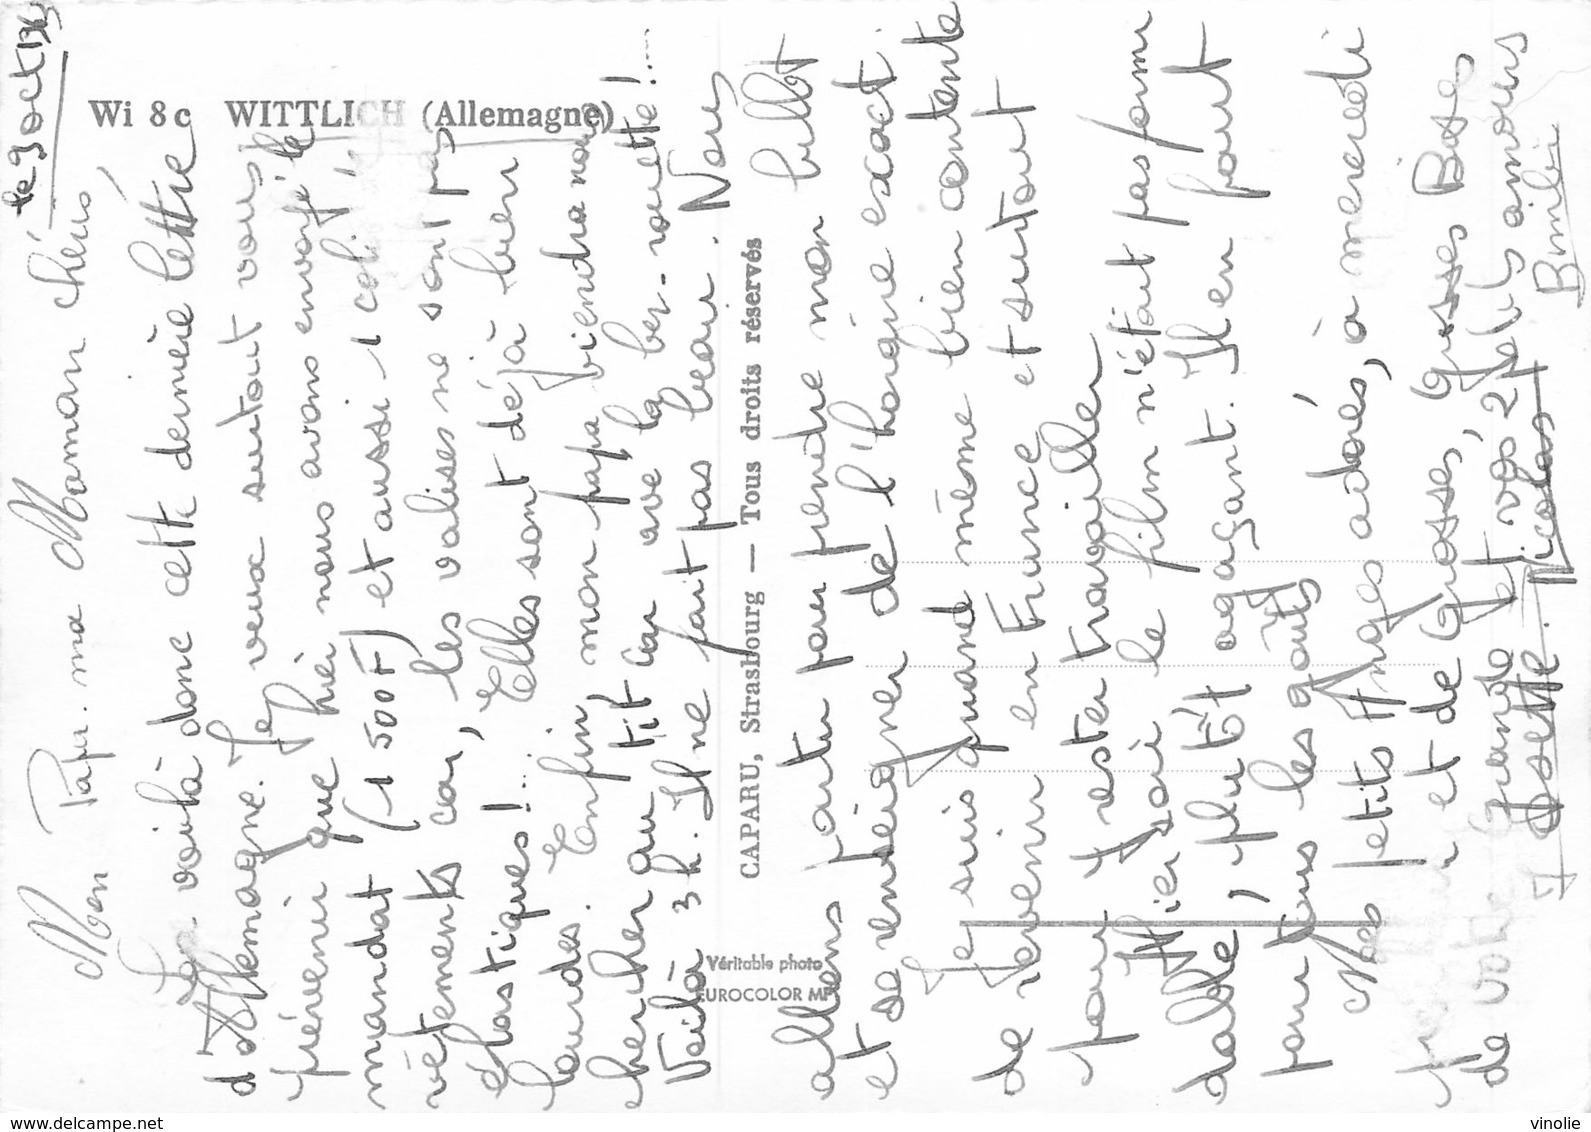 Wi 8c WITTLICH (Allemagne)
CAPARU, Strasbourg — Tous droits réservés
Véritable photo
EUROCOLOR MP
le 9 oct 1963
Mon Papa. ma Maman chéris
voilà donc cette dernière lettre
d'Allemagne. Je veux surtout vous
prévenir que hier nous avons envoyé le
mandat (1500F) et aussi 1 colis
vêtements car, les valises ne sont pas
élastiques!... Elles sont déjà bien
lourdes. Enfin mon papa viendra nous
chercher au tit car ave la ber-rouette!....
Voilà 3h. Il ne fait pas beau. Nous
allons partir pour prendre mon billet
et se renseigner de l'horaire exact.
Je suis quand même bien contente
de revenir en France et surtout
pour rester travailler
Hier soir le film n'était pas formi
dable, plutôt agaçant. Il en faut
pour tous les goûts
Mes petits Anges adorés, à mercredi
et de Grosses, Grosses Bises
de votre Grande et vos 2 petits amours
Josette. Nicolas
Bimbi
delcampe.net
vinolie